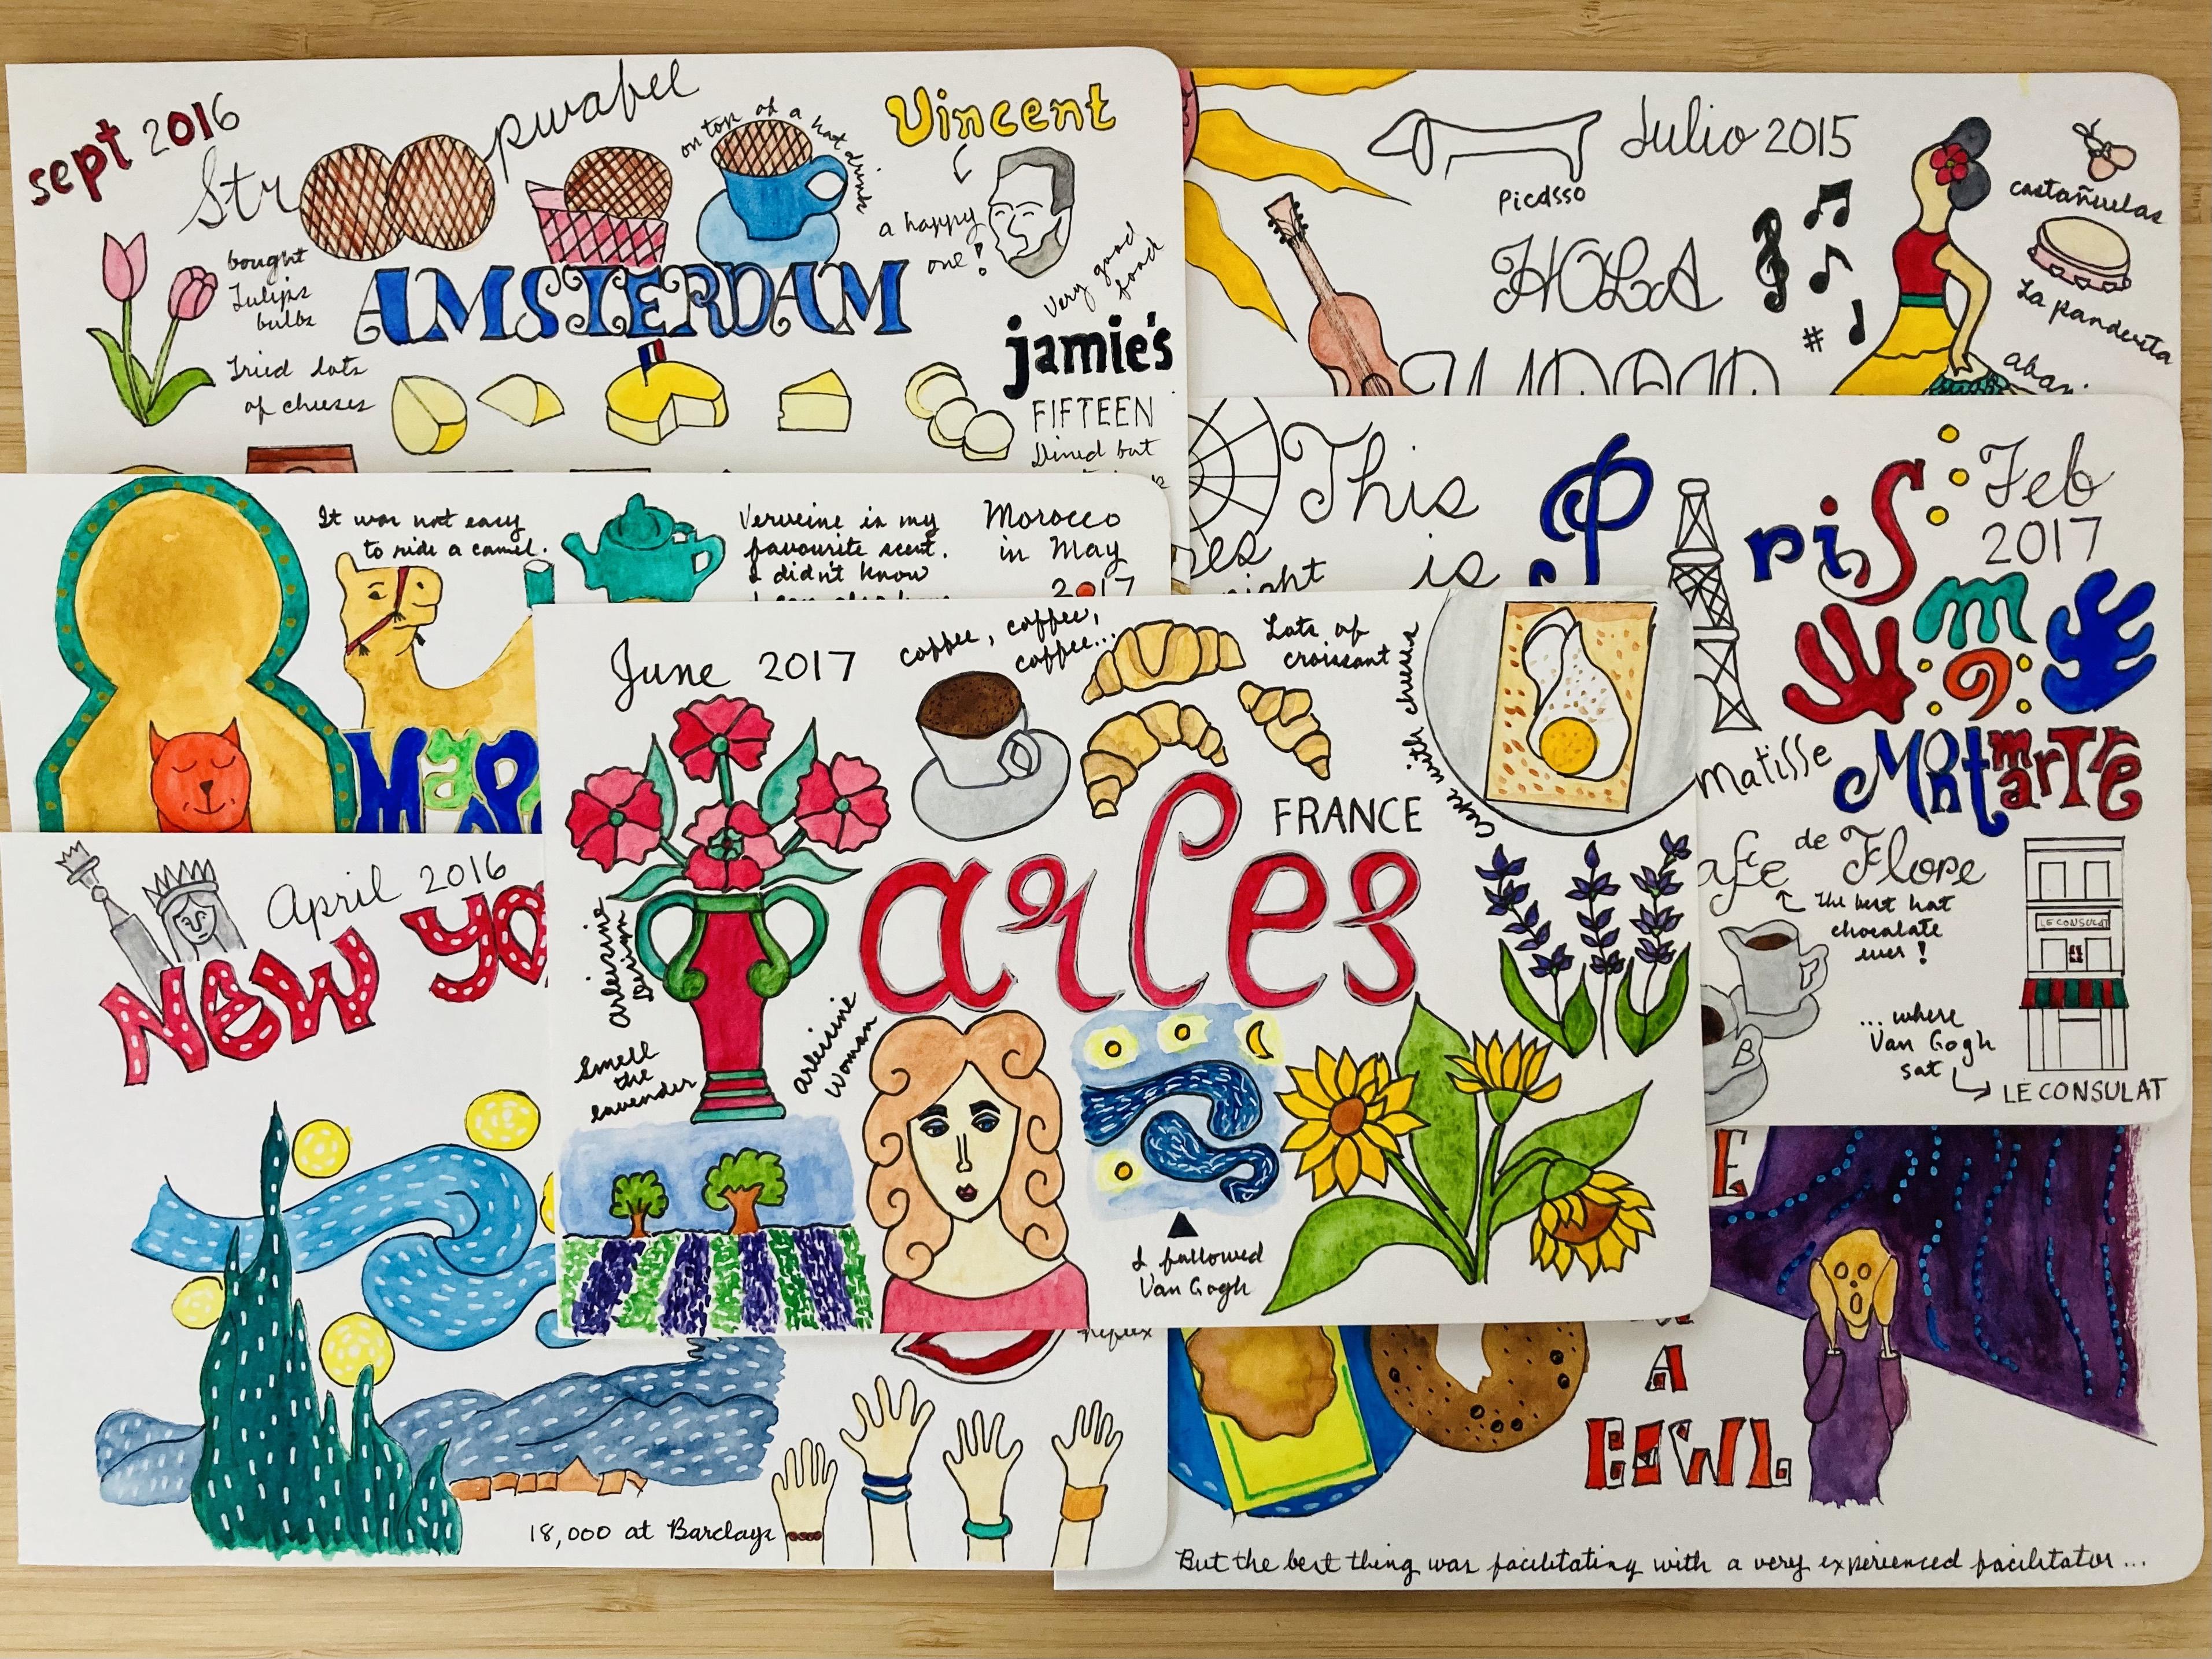 sept 2016
Str pwafel
on top of a hot drink
Vincent
a happy
one!
bought
Tulips
bulbs
AMSTERDAM
very good
food
jamie's
FIFTEEN
Dined but
Tried lots
of cheeses
Julio 2015
Picasso
HOLA
#
castañuelas
La pandereta
This
is
Paris
Feb
2017
Matisse
Montmartre
de Flore
The best hot
chocolate
ever!
LE CONSULAT
... where
Van Gogh
sat
LE CONSULAT
It was not easy
to ride a camel.
Verveine is my
favourite scent.
I didn't know
Morocco
in May
2017
June 2017
coffee, coffee,
coffee...
Lots of
croissant
crepe with cheese
FRANCE
arles
Arlesine
Design
Smell
the
lavender
arlesine
woman
I followed
Van Gogh
April 2016
NEW YO
18,000 at Barclays
A
BOWL
But the best thing was facilitating with a very experienced facilitator...